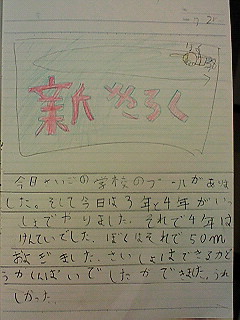 新きろく
今日さいごの学校のプールがありま
した。そして今日は3年と4年がいっ
しょでやりました。それで4年は
けんていでした。ぼくはそれで50m
およぎました。さいしょはできるかど
うかしんぱいでしたができました。うれ
しかった。